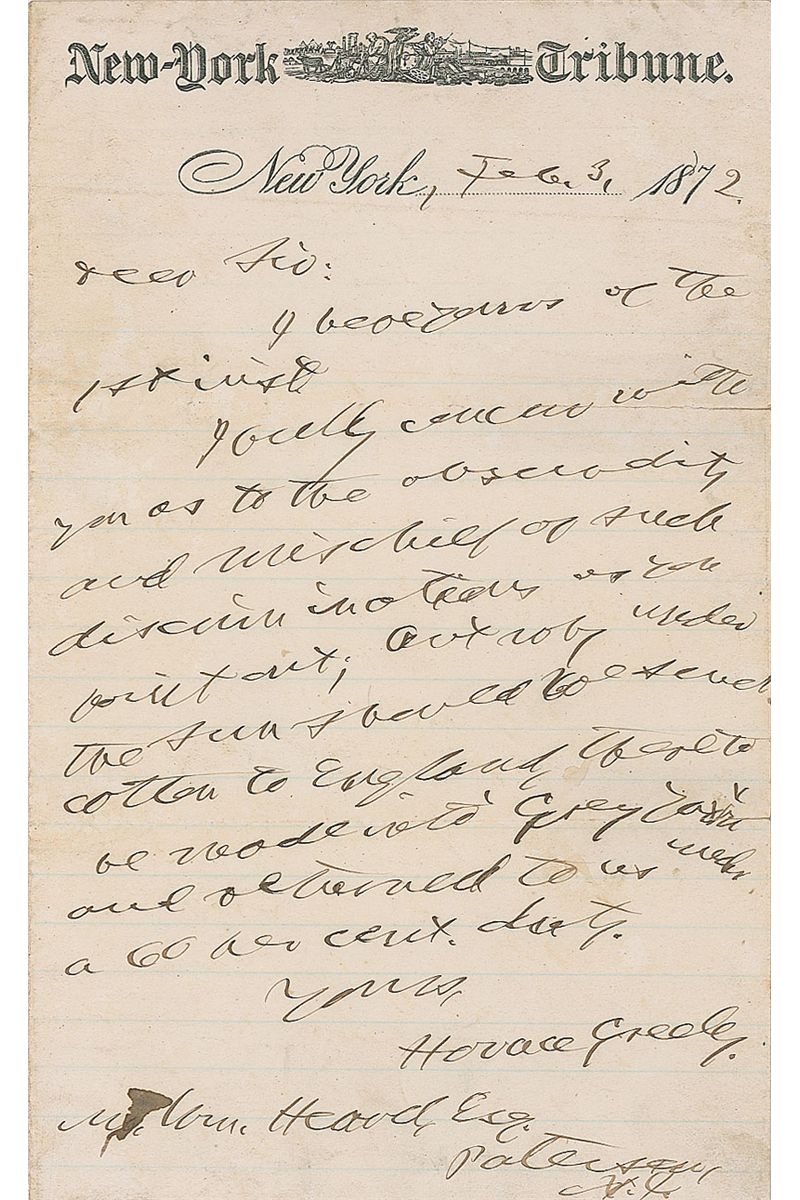 New-York Tribune.
New York, Feb. 3, 1872.
Dear Sir:
I have yours of the
1st inst.
I fully concur with
you as to the absurdity
and mischief of such
discriminations as you
point out; but why under
the sun should we send
cotton to England, there to
be made into Grey Yarn
and returned to us under
a 60 per cent. duty.
Yours,
Horace Greeley.
Mr. Wm. Heard, Esq.
Paterson,
N.J.